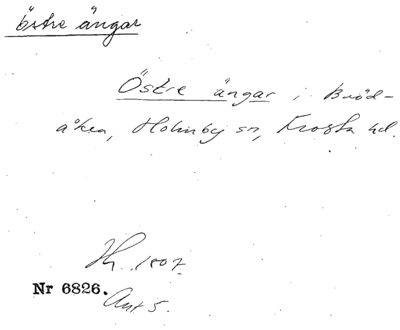 östre ängar
Östre ängar i Bröd-
åkra, Holmby sn, Frosta hd.
Hy. 1807.
Nr 6826.
Ant 5.